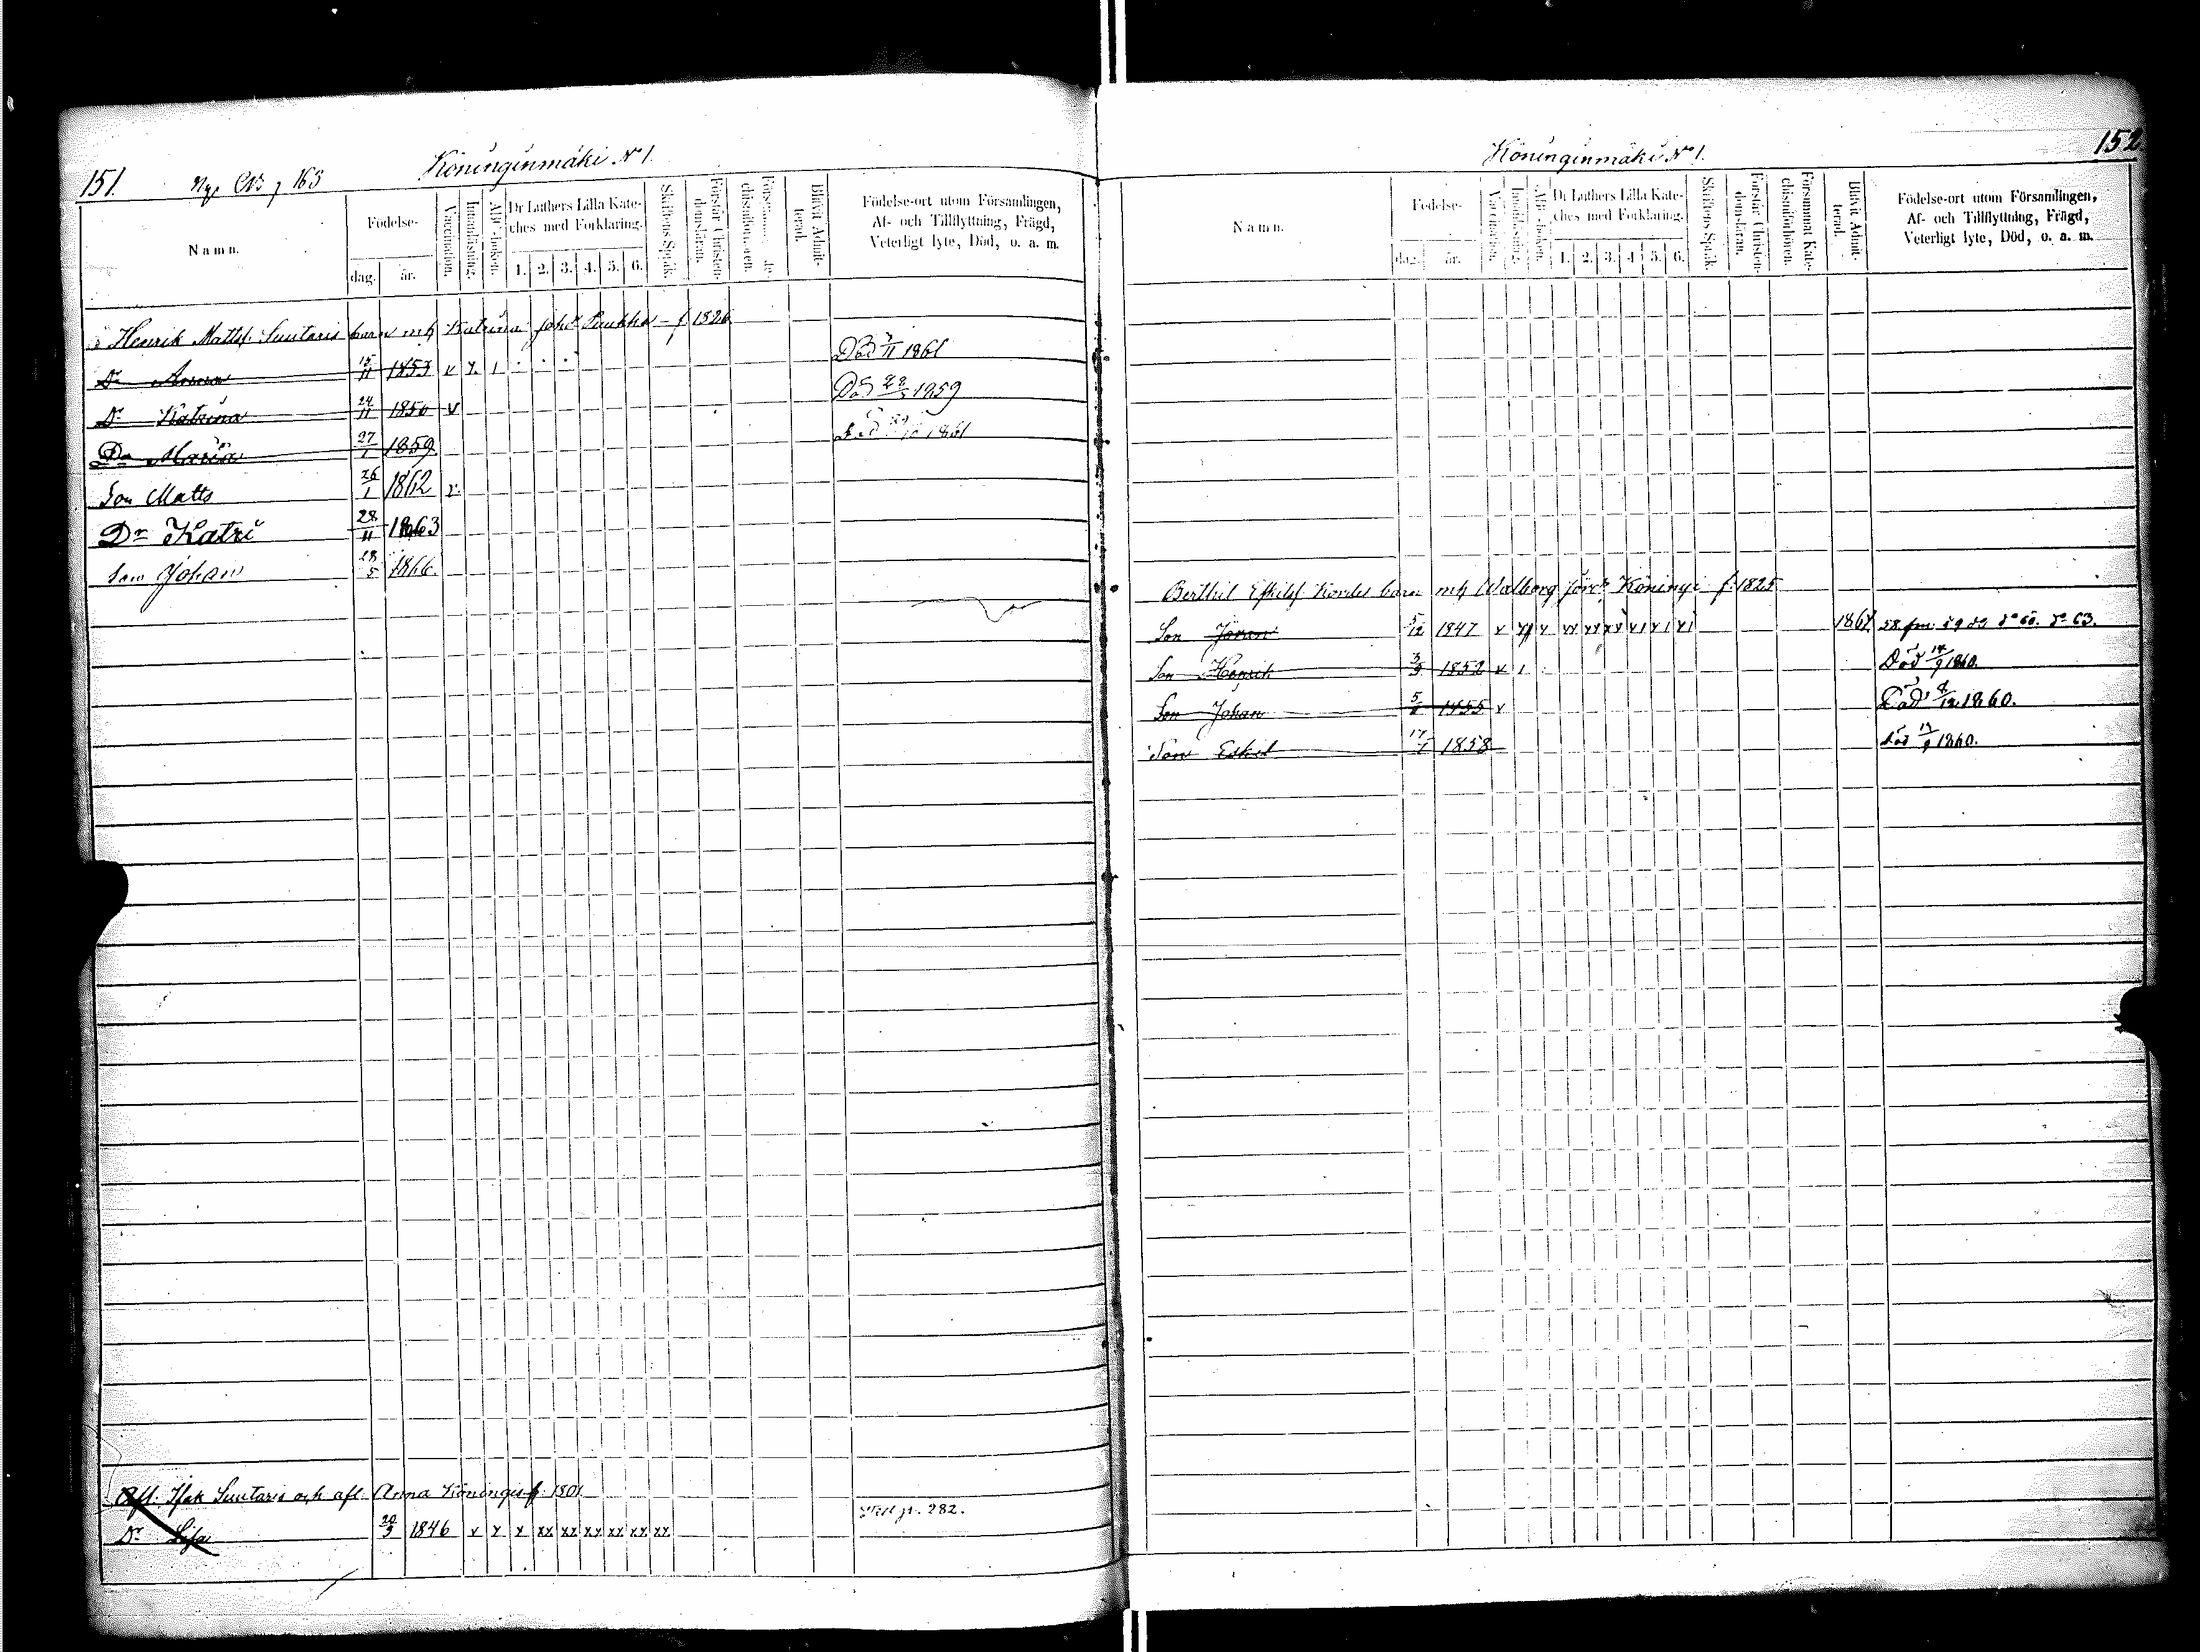 151. Nya CNs 7 163 Köninginmäki No 1.
Namn. Födelse- dag. år. Vaccination. Innanläsning. ABC-boken. Dr Luthers Lilla Kateches med Förklaring. 1. 2. 3. 4. 5. 6. Skriftens Språk. Förstår Christendomsläran. Blifvit Admitterad. Födelse-ort utom Församlingen, Af- och Tillflyttning, Frägd, Veterligt lyte, Död, o. a. m.
Henrik Mattss. Suutaris barn mh Katrina Johd. Puukka f. 1826
Dr Anna 15/11 1853 v x 1 Död 7/11 1861
Dr Katrina 24/11 1856 v Död 1859
Dr Maria 27/1 1859 Död 1861
Son Matts 26/1 1862 v.
Dr Katri 28/11 1863
Son Johan 28/5 1866.
Afl. Isak Suutaris och afl. Anna Köningis f. 1801
Dr Lisa 20/3 1846 v x x xx xx xx xx xx xx 282.
Köninginmäki No 1. 152
Namn. Födelse- dag. år. Vaccination. Innanläsning. ABC-boken. Dr Luthers Lilla Kateches med Förklaring. 1. 2. 3. 4. 5. 6. Skriftens Språk. Förstår Christendomsläran. Försummat Katechismiförhören. Blifvit Admitterad. Födelse-ort utom Församlingen, Af- och Tillflyttning, Frägd, Veterligt lyte, Död, o. a. m.
Berthil Eskilss. Kordes barn mh Walborg Jörd. Köningi f. 1825
Son Jöran 5/12 1847 v xx x xx xx xx x1 x1 x1 1864 58 fm. 59 do do 60. do 63.
Son Henrik 3/3 1852 v 1 Död 14/9 1860.
Son Johan 1855 v Död 8/12 1860.
Son Eskil 17/1 1858 död 13/9 1860.